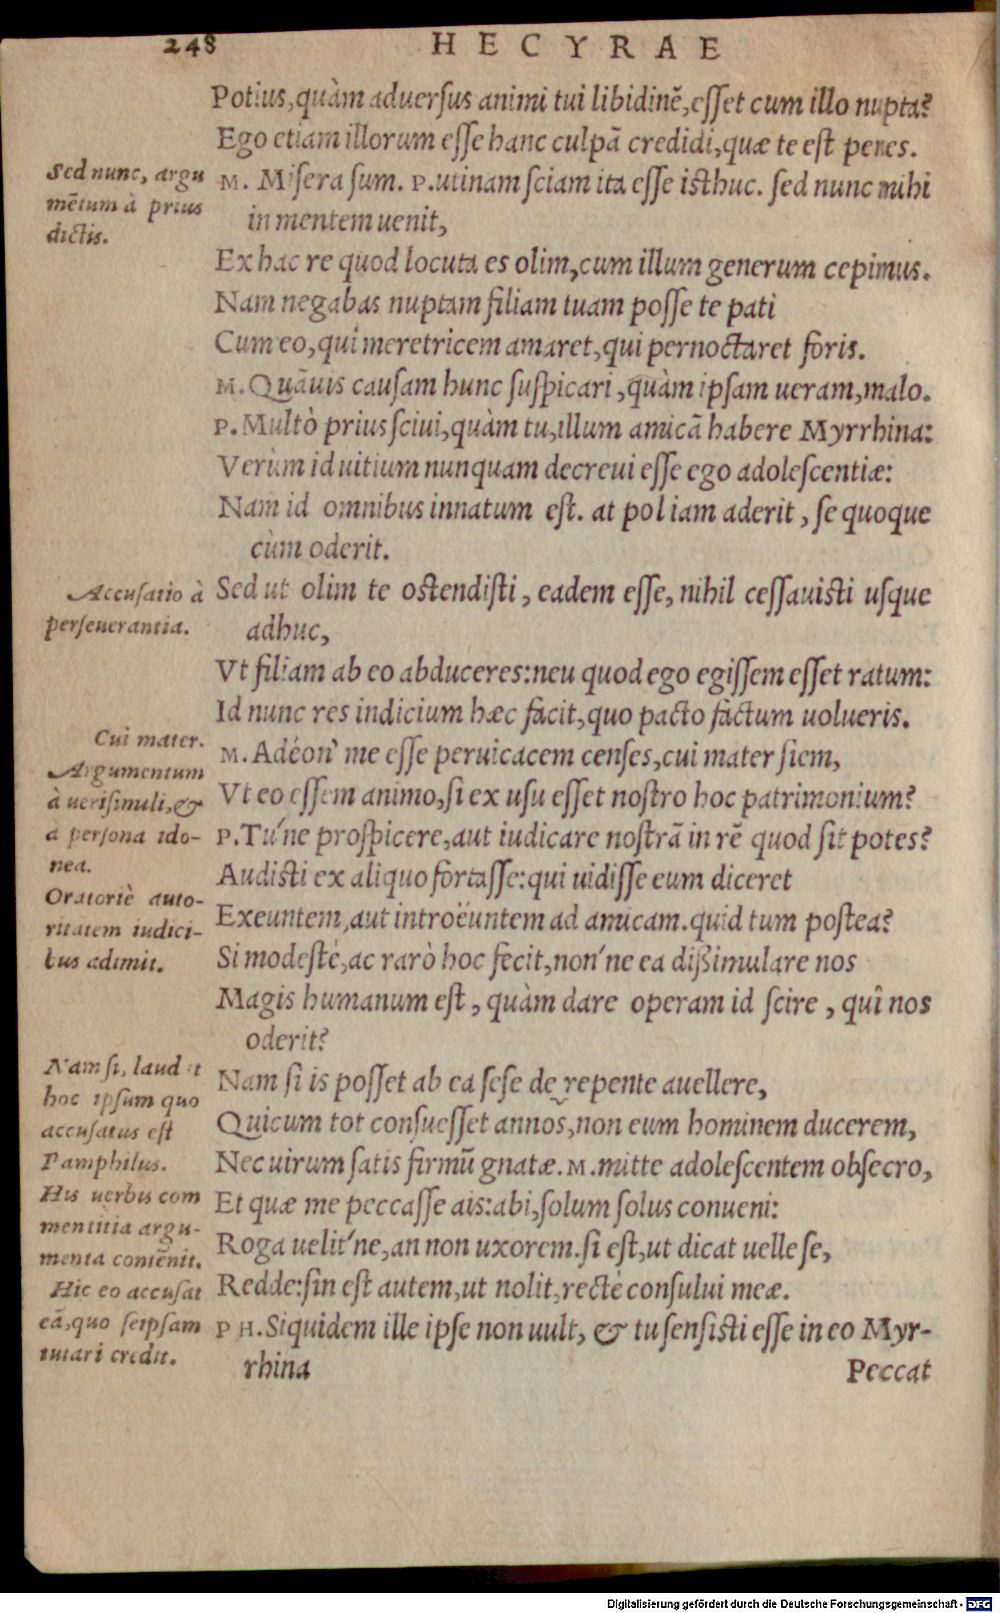 248
HECYRAE
Potius, quàm aduersus animi tui libidinē, esset cum illo nupta?
Ego etiam illorum esse hanc culpā credidi, quæ te est penes.
Sed nunc, argu
mētum à prius
dictis.
M. Misera sum. P. utinam sciam ita esse isthuc. sed nunc mihi
in mentem uenit,
Ex hac re quod locuta es olim, cum illum generum cepimus.
Nam negabas nuptam filiam tuam posse te pati
Cum eo, qui meretricem amaret, qui pernoctaret foris.
M. Quāuis causam hunc suspicari, quàm ipsam ueram, malo.
P. Multò prius sciui, quàm tu, illum amicā habere Myrrhina:
Verùm id uitium nunquam decreui esse ego adolescentiæ:
Nam id omnibus innatum est. at pol iam aderit, se quoque
cùm oderit.
Accusatio à
perseuerantia.
Sed ut olim te ostendisti, eadem esse, nihil cessauisti usque
adhuc,
Vt filiam ab eo abduceres: neu quod ego egissem esset ratum:
Id nunc res indicium hæc facit, quo pacto factum uolueris.
Cui mater.
Argumentum
à uerisimuli, &
à persona ido-
nea.
M. Adeón' me esse peruicacem censes, cui mater siem,
Vt eo essem animo, si ex usu esset nostro hoc patrimonium?
P. Tu'ne prospicere, aut iudicare nostrā in rē quod sit potes?
Audisti ex aliquo fortasse: qui uidisse eum diceret
Oratoriè auto-
ritatem iudici-
bus adimit.
Exeuntem, aut introëuntem ad amicam. quid tum postea?
Si modestè, ac rarò hoc fecit, non'ne ea dißimulare nos
Magis humanum est, quàm dare operam id scire, quî nos
oderit?
Nam si, laudat
hoc ipsum quo
accusatus est
Pamphilus.
Nam si is posset ab ea sese derepente auellere,
Quicum tot consuesset annos, non eum hominem ducerem,
Nec uirum satis firmū gnatæ. M. mitte adolescentem obsecro,
His uerbis com
mentitia argu-
menta contēnit.
Et quæ me peccasse ais: abi, solum solus conueni:
Roga uelit'ne, an non uxorem. si est, ut dicat uelle se,
Hic eo accusat
eā, quo seipsam
tutari credit.
Redde: sin est autem, ut nolit, rectè consului meæ.
PH. Siquidem ille ipse non uult, & tu sensisti esse in eo Myr-
rhina
Peccat
Digitalisierung gefördert durch die Deutsche Forschungsgemeinschaft - DFG